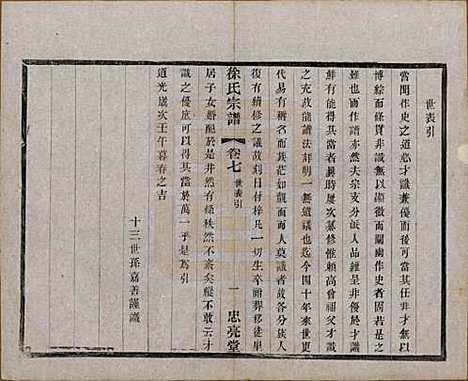 世表引
嘗聞作史之道必才識兼優而後可其任非有才無以
博綜而條貫非識無以顯微而闡幽作史者固若是其
難也而作譜亦然夫宗支分派非優於才識
鮮有能得其當者曩時屢次纂修賴高曾祖父才識
之充故能譜法詳明一無遺議也迄今四十年來世更
代易有茫如覿面而人莫識者故各分族人
復有續修之議故刻日付梓凡一切生卒葬移徙里
居子女婚配於是井然有條秩然不紊矣敢云才
識之優庶可以得其當於萬一乎是為引
道光歲次壬午暮春之吉
十三世孫嘉善謹識
徐氏宗譜
卷七
世表引
一
忠亮堂